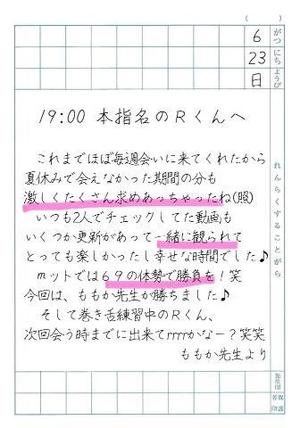 ( )
6 がつ
23 にち
日 ようび
れんらくすることがら
19:00 本指名のRくんへ
これまでほぼ毎週会いに来てくれたから
夏休みで会えなかった期間の分も
激しくたくさん求めあっちゃったね(照)
いつも2人でチェックしてた動画も
いくつか更新があって一緒に観られて
とっても楽しかったし幸せな時間でした♪
mットでは69の体勢で勝負を!笑
今回は、ももか先生が勝ちました♪
そして巻き舌練習中のRくん、
次回会う時までに出来てrrrrかなー?笑笑
ももか先生より